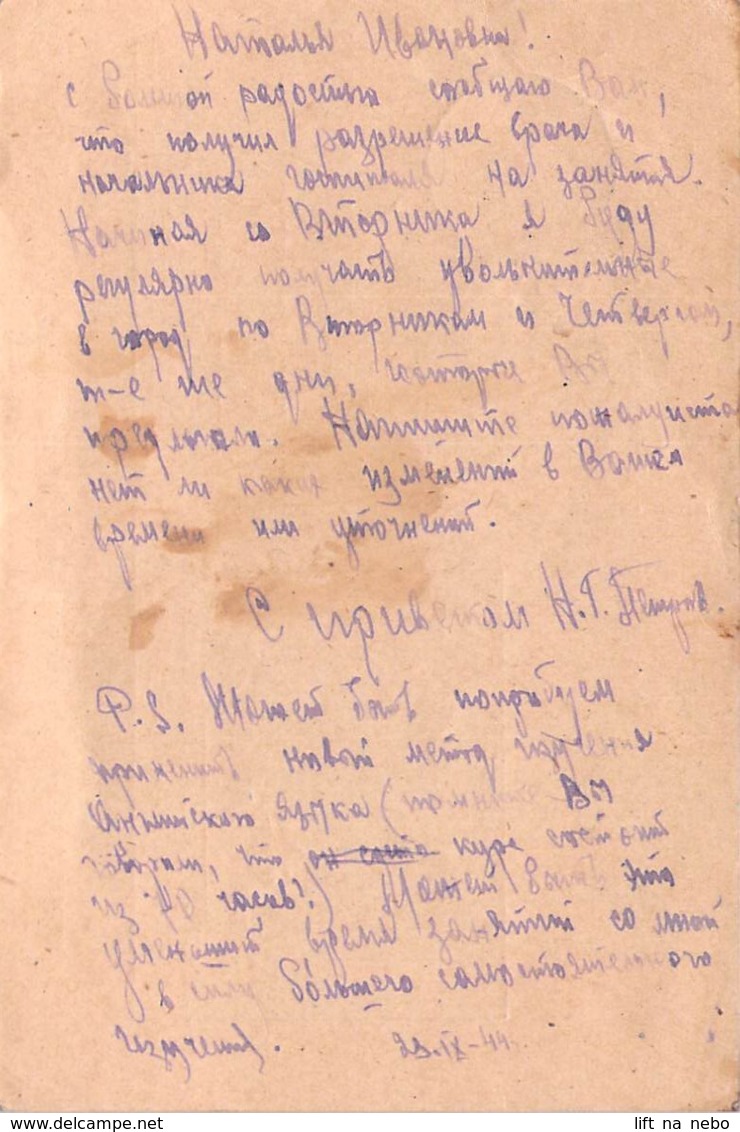 Наталья Ивановна!
С большой радостью сообщаю Вам,
что получил разрешение врача и
начальника госпиталя на занятия.
Начиная со Вторника я буду
регулярно получать увольнительные
в город по Вторникам и Четвергам,
т-е те же дни, которые Вы
предлагали. Напишите пожалуйста
нет ли каких изменений в Вашем
времени или уточнений.
С приветом Н.Г. Петров.
P.S. Может быть попробуем
применить новый метод изучения
Английского языка (помните Вы
говорили, что курс состоит
из 70 часов?) Может быть это
уменьшит время занятий со мной
в силу бо́льшего самостоятельного
изучения.
23.IX-44г.
lift na nebo